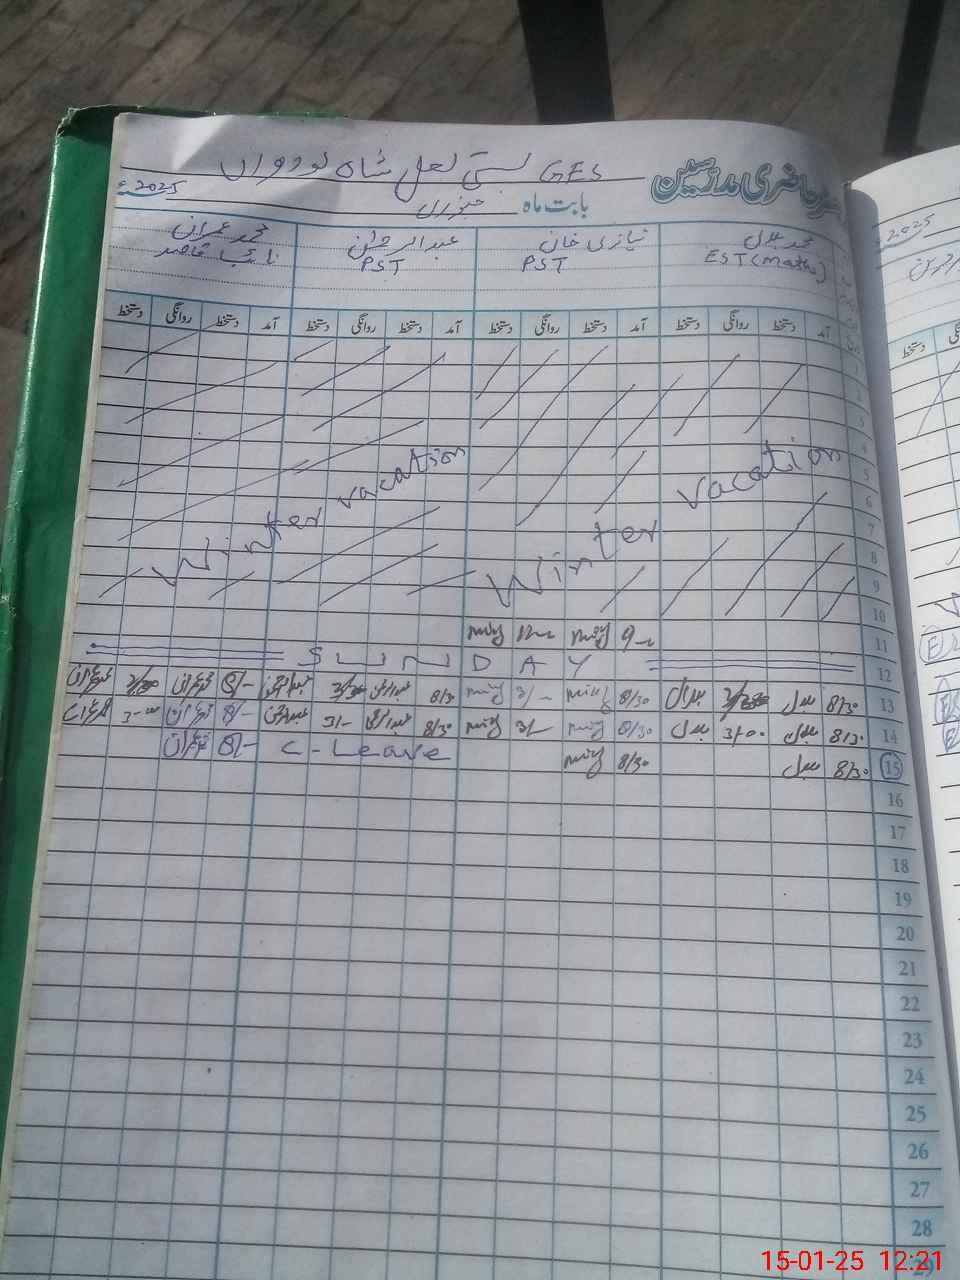 رجسٹر حاضری مدرسین GES بستی لعل شاہ نوردواں
بابت ماہ جنوری 2025ء
محمد بلال نیازی خان عبدالرحمٰن محمد عمران
EST (Maths) PST PST نائب قاصد
آمد دستخط روانگی دستخط آمد دستخط روانگی دستخط آمد دستخط روانگی دستخط آمد دستخط روانگی دستخط
1
2
3
4
5
6
7
8
9
10
Winter vacation Winter vacation
11 9 12
12 SUNDAY
13 8/30 بلال بلال 8/30 3/- 8/30 8/- محمد عمران محمد عمران
14 8/30 بلال 3/00 بلال 8/30 3/- 8/30 3/- 8/- محمد عمران 3-00
15 8/30 بلال 8/30 C-Leave 8/- محمد عمران
16
17
18
19
20
21
22
23
24
25
26
27
28
29
2025
دستخط
15-01-25 12:21